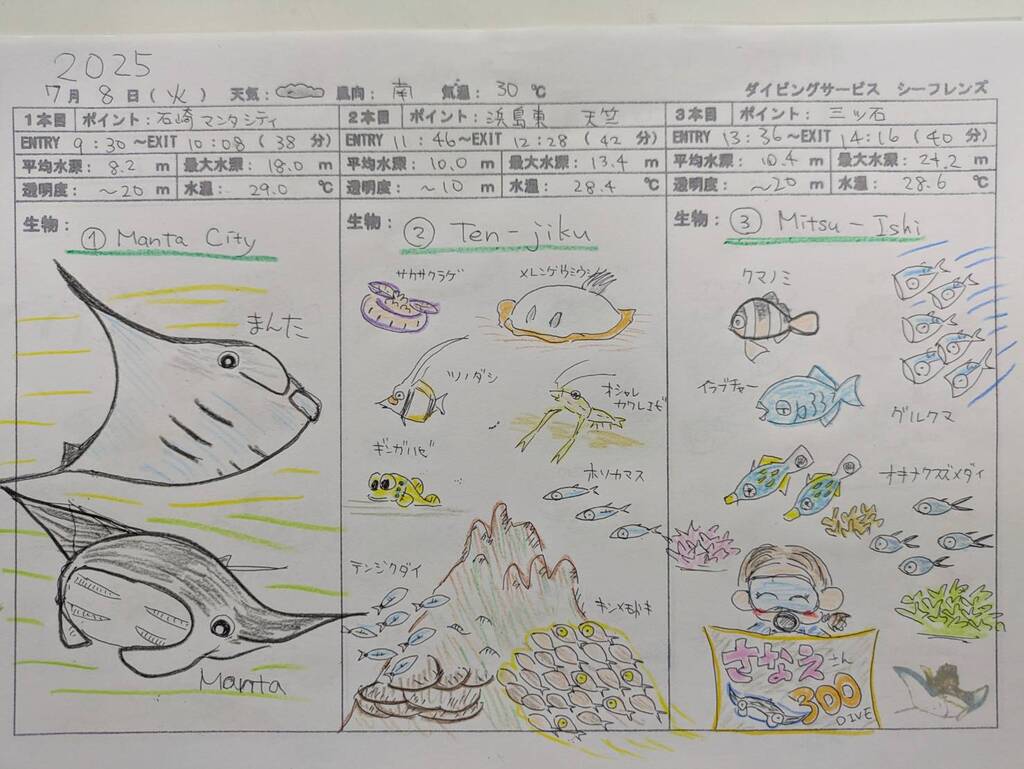 2025
7月 8日(火) 天気: 風向: 南 気温: 30℃ ダイビングサービス シーフレンズ
1本目 ポイント:石崎マンタシティ
ENTRY 9:30~EXIT 10:08(38分)
平均水深: 8.2 m 最大水深: 18.0 m
透明度: ~20 m 水温: 29.0 ℃
生物:
① Manta City
まんた
Manta
2本目 ポイント:浜島東 天竺
ENTRY 11:46~EXIT 12:28(42分)
平均水深: 10.0 m 最大水深: 13.4 m
透明度: ~10 m 水温: 28.4 ℃
生物:
② Ten-jiku
サカサクラゲ
メレンゲウミウシ
ツノダシ
オシャレ
カクレエビ
ギンガハゼ
ホソカマス
テンジクダイ
キンメモドキ
3本目 ポイント: 三ツ石
ENTRY 13:36~EXIT 14:16(40分)
平均水深: 10.4 m 最大水深: 24.2 m
透明度: ~20 m 水温: 28.6 ℃
生物:
③ Mitsu-Ishi
クマノミ
イラブチャー
グルクマ
オキナワスズメダイ
さなえさん
300
DIVE